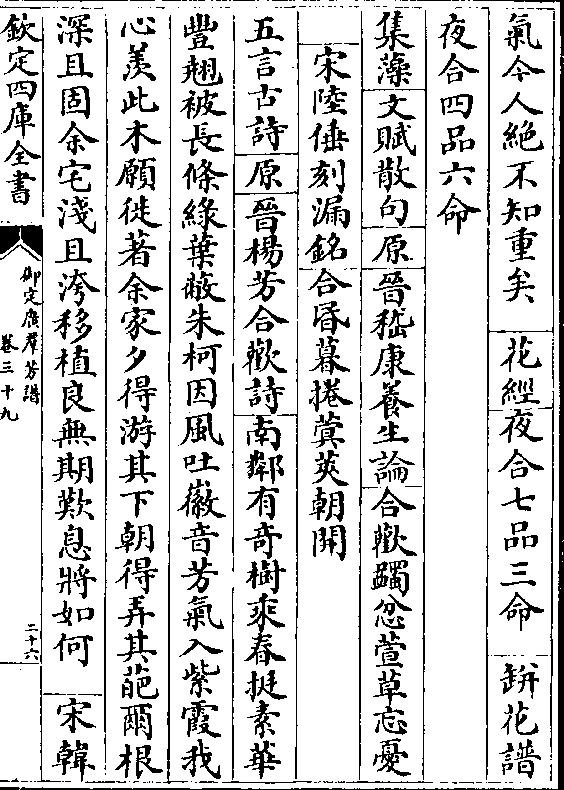 氣令人絶不知重矣　花經夜合七品三命　缾花譜
夜合四品六命
集藻文賦散句原晉嵇康養生論合歡蠲忿萱草忘憂
宋陸倕刻漏銘合昬暮捲蓂莢朝開
五言古詩原晉楊芳合歡詩南鄰有竒樹乘春挺素華
豐翹被長條綠葉蔽朱柯因風吐徽音芳氣入紫霞我
心羡此木願徙著余家夕得游其下朝得弄其葩爾根
深且固余宅淺且洿移植良無期歎息將如何　宋韓
欽定四庫全書
御定廣羣芳譜
卷三十九
二十六